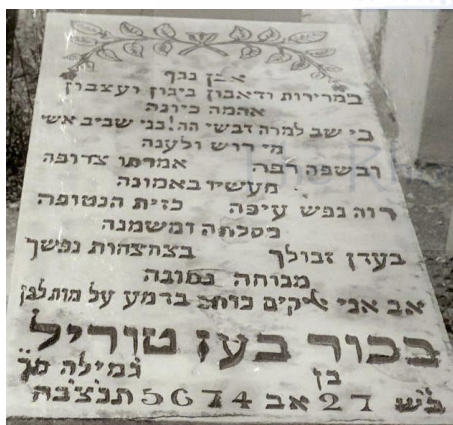 אבן נגף
במרירות ודאבון ביגון ועצבון
אהמה כיונה
בי שב למרה דבשי הה! בני שביב אשי
מי רוש ולענה
ובשפה רפה אמרתו צרופה
מעשיו באמונה
רוה נפש עיפה כזית הנטופה
בסלתה ומשמנה
בעדן זבולך בצחצחות נפשך
מנוחה נכונה
אב אני אקים בדמע על מות לבן
בכור בעז טוריל
בן גמילה מך
ב״ש 27 אב 5674 תנצבה